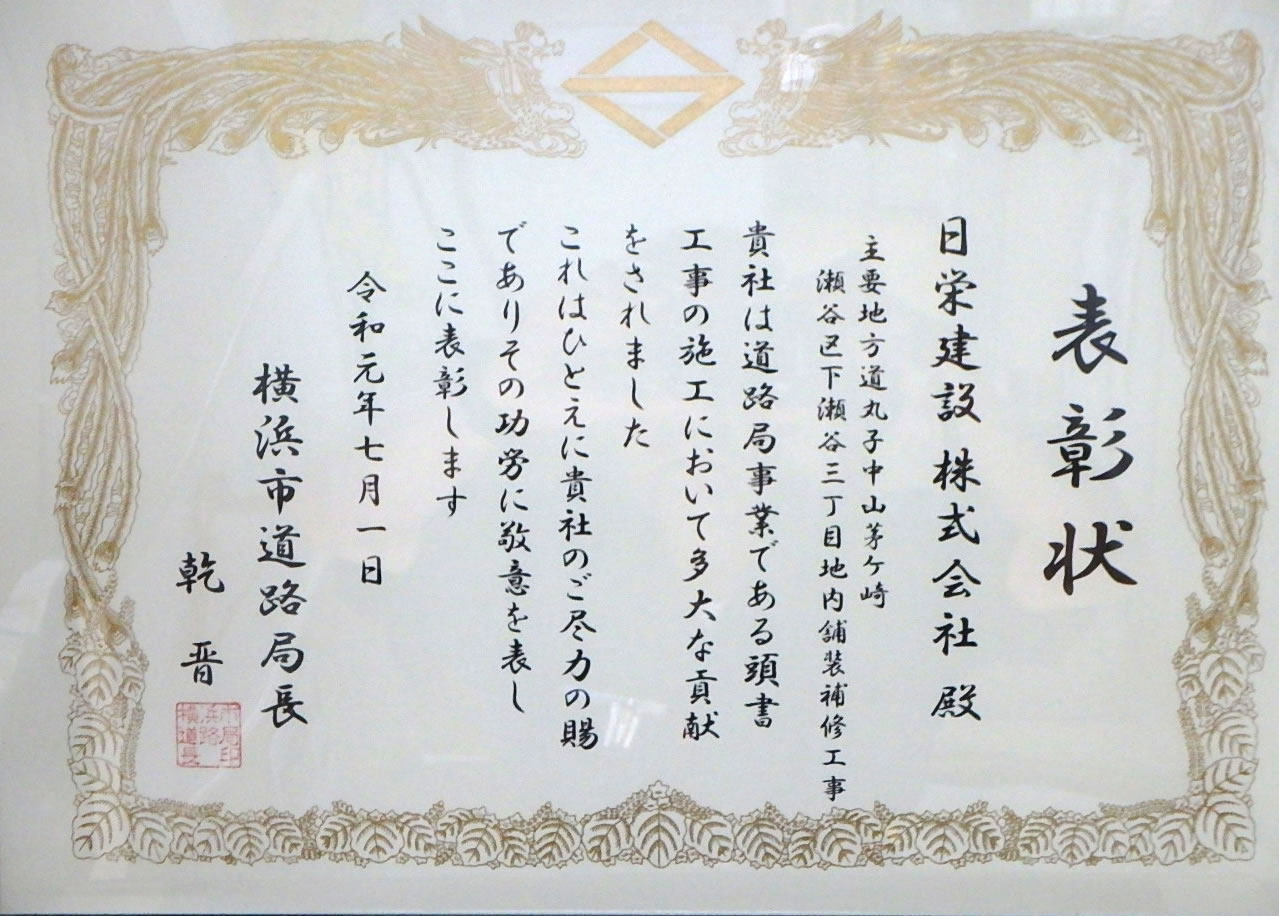 表彰状
日栄建設株式会社殿
主要地方道丸子中山茅ケ崎
瀬谷区下瀬谷三丁目地内舗装補修工事
貴社は道路局事業である頭書
工事の施工において多大な貢献
をされました
これはひとえに貴社のご尽力の賜
でありその功労に敬意を表し
ここに表彰します
令和元年七月一日
横浜市道路局長
乾 晋